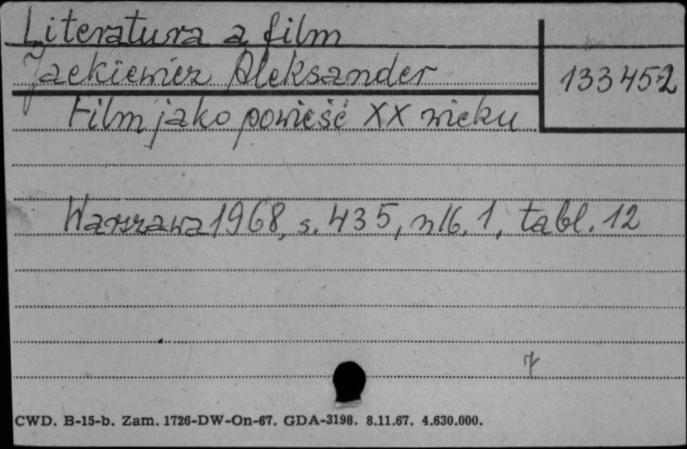 Literatura a film
Jackiewicz Aleksander
133452
Film jako powieść XX wieku
Warszawa 1968, s. 435, nlb. 1, tabl. 12
7
CWD. B-15-b. Zam. 1726-DW-On-67. GDA-3198. 8.11.67. 4.630.000.